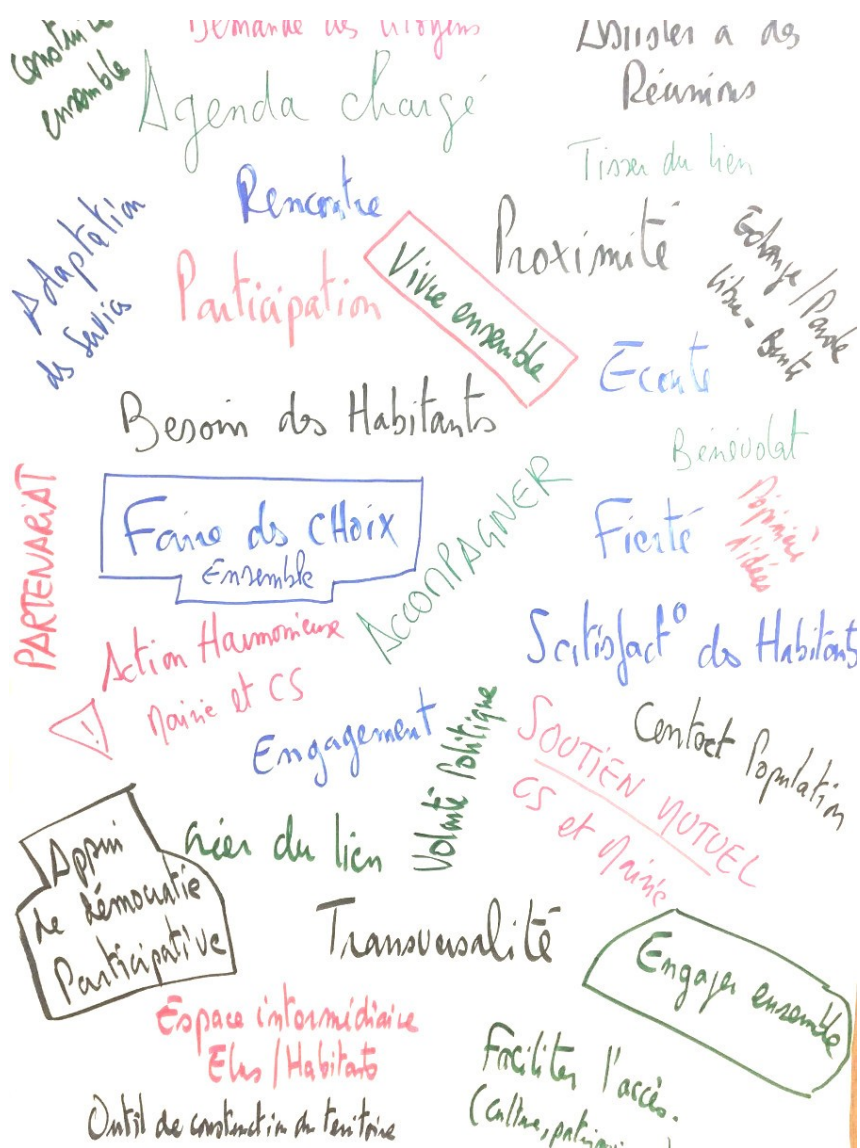 Construire
ensemble
Demande des citoyens
Assister à des
Réunions
Agenda chargé
Tisser du lien
Rencontre
Proximité
Adaptation
des Services
Participation
Vivre ensemble
Echange/Parole
libre -
Ecoute
Besoin des Habitants
Bénévolat
PARTENARIAT
Faire des CHoix
Ensemble
ACCOMPAGNER
Fierté
Pépinière
d'idées
Action Harmonieuse
Mairie et CS
!
Satisfact° des Habitants
Engagement
Volonté Politique
SOUTIEN MUTUEL
CS et Mairie
Contact Population
Créer du lien
Appui
de démocratie
Participative
Transversalité
Engager ensemble
Espace intermédiaire
Elus/Habitants
Faciliter l'accès.
Outil de construction du territoire
(Culture,